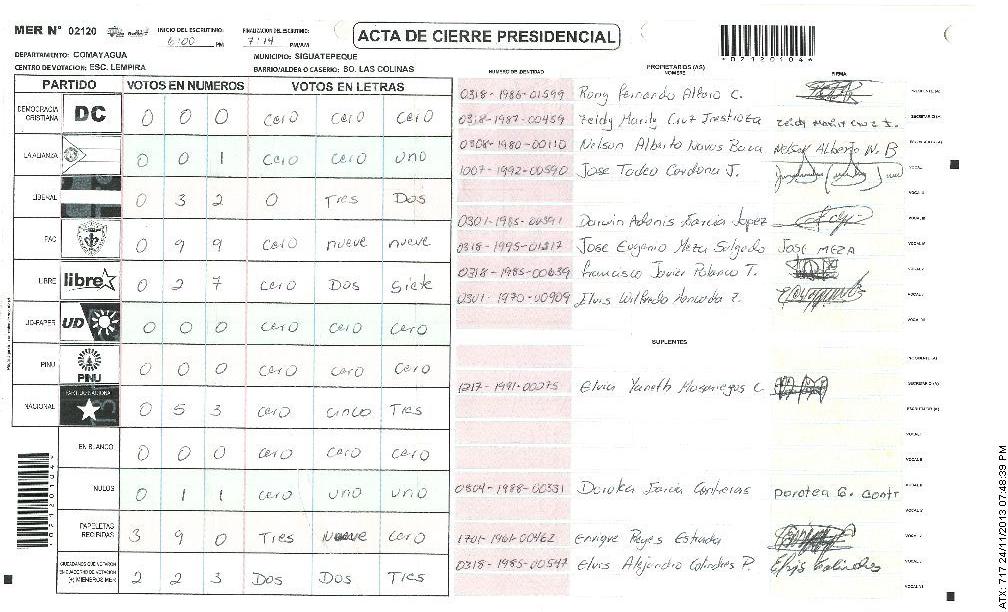 MER N° 02120
INICIO DEL ESCRUTINIO: 6:00 PM
FINALIZACION DEL ESCRUTINIO: 7:14 PM/AM
ACTA DE CIERRE PRESIDENCIAL
*02120104*
DEPARTAMENTO: COMAYAGUA
MUNICIPIO: SIGUATEPEQUE
CENTRO DE VOTACION: ESC. LEMPIRA
BARRIO/ALDEA O CASERIO: BO. LAS COLINAS
PARTIDO VOTOS EN NUMEROS VOTOS EN LETRAS
DEMOCRACIA CRISTIANA DC 0 0 0 cero cero cero
LA ALIANZA 0 0 1 cero cero uno
LIBERAL 0 3 2 0 Tres Dos
PAC 0 9 9 cero nueve nueve
LIBRE libre 0 2 7 cero Dos siete
UD-FAPER UD 0 0 0 cero cero cero
PINU PINU 0 0 0 cero cero cero
NACIONAL PARTIDO NACIONAL 0 5 3 cero cinco Tres
EN BLANCO 0 0 0 cero cero cero
NULOS 0 1 1 cero uno uno
PAPELETAS RECIBIDAS 3 9 0 Tres Nueve cero
CIUDADANOS QUE VOTARON EN CUADERNO DE VOTACION (+) MIEMBROS MER 2 2 3 Dos Dos Tres
NUMERO DE IDENTIDAD PROPIETARIOS (AS) NOMBRE FIRMA
0318-1986-01599 Rony Fernando Alfaro C. PRESIDENTE (A)
0318-1987-00459 Zeidy Marily Cruz SECRETARIO (A)
0308-1980-00110 Nelson Alberto Nelson Alberto N. B
1007-1992-00590 Jose Tadeo Cardona J. VOCAL I
0301-1985-00591 Darwin Adonis Garcia Lopez VOCAL III
0318-1995-01217 Jose Eugenio Meza Salgado JOSE MEZA VOCAL IV
0318-1985-00639 Francisco Javier Polanco T. VOCAL V
0301-1970-00909 Elvis Wilfredo
SUPLENTES
PRESIDENTE (A)
1217-1991-00075 Elvia Yaneth C. SECRETARIO (A)
ESCRUTADOR (A)
VOCAL I
VOCAL II
0304-1988-00331 Dorotea Garcia Contreras Dorotea G. Contr
1701-1961-00462 Enrique Reyes Estrada
0318-1985-00547 Elvis Alejandro Colindres P. Elvis Colindres
*02120104*
ATX: 717 24/11/2013 07:48:39 PM